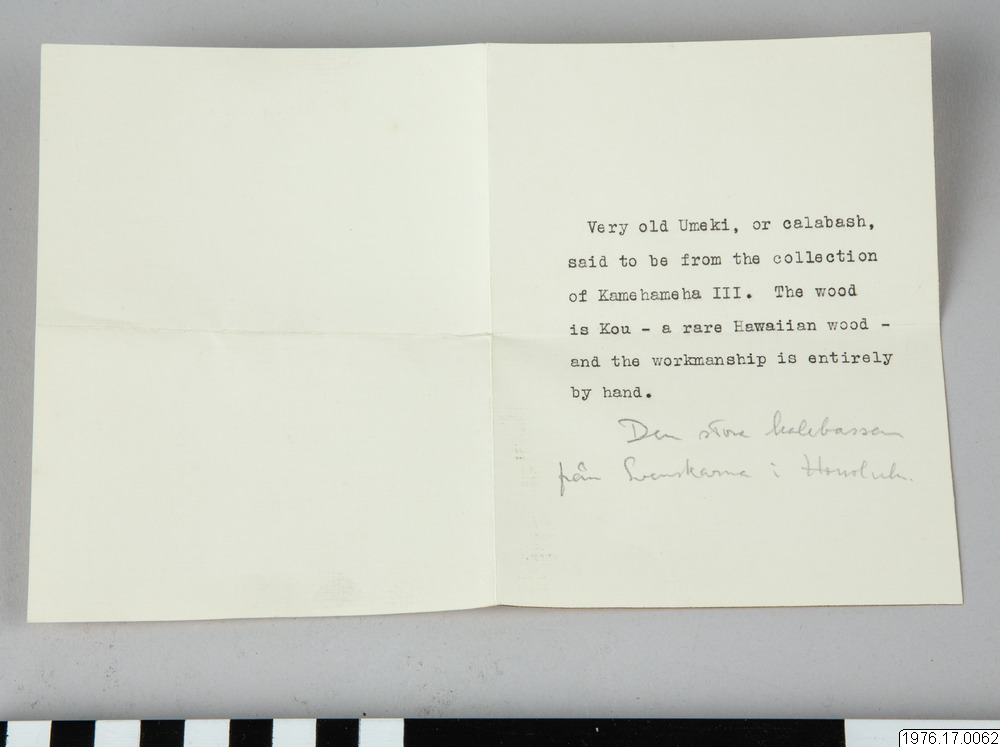 Very old Umeki, or calabash,
said to be from the collection
of Kamehameha III. The wood
is Kou - a rare Hawaiian wood -
and the workmanship is entirely
by hand.
Den stora kalebassen
från Svenskarna i Honolulu.
1976.17.0062